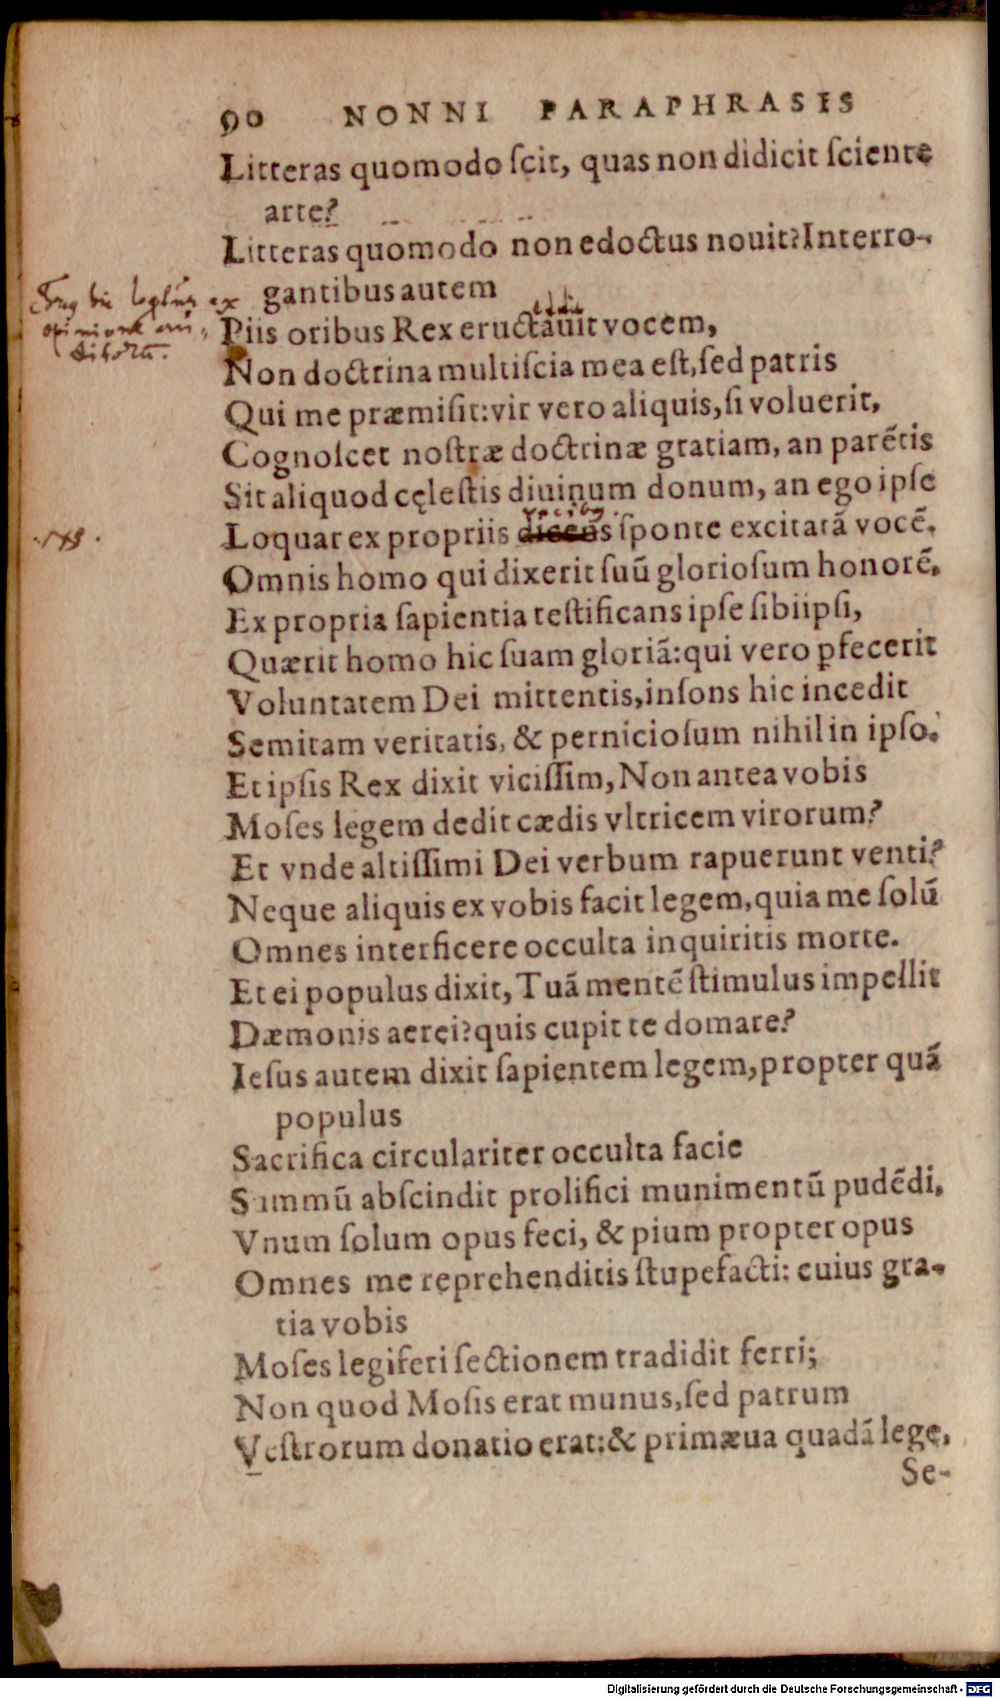 90 NONNI PARAPHRASIS
Litteras quomodo ſcit, quas non didicit ſciente
arte?
Litteras quomodo non edoctus nouit? Interro-
gantibus autem
Piis oribus Rex eructauit vocem,
Non doctrina multiſcia mea eſt, ſed patris
Qui me præmiſit: vir vero aliquis, ſi voluerit,
Cognoſcet noſtræ doctrinæ gratiam, an parẽtis
Sit aliquod cęleſtis diuinum donum, an ego ipſe
Loquar ex propriis dicens ſponte excitatã vocẽ.
Omnis homo qui dixerit ſuũ glorioſum honorẽ,
Ex propria ſapientia teſtificans ipſe ſibiipſi,
Quærit homo hic ſuam gloriã: qui vero ꝑfecerit
Voluntatem Dei mittentis, inſons hic incedit
Semitam veritatis, & pernicioſum nihil in ipſo.
Et ipſis Rex dixit viciſſim, Non antea vobis
Moſes legem dedit cædis vltricem virorum?
Et vnde altiſſimi Dei verbum rapuerunt venti?
Neque aliquis ex vobis facit legem, quia me ſolũ
Omnes interficere occulta inquiritis morte.
Et ei populus dixit, Tuã mentẽ ſtimulus impellit
Dæmonis aerei? quis cupit te domare?
Ieſus autem dixit ſapientem legem, propter quã
populus
Sacrifica circulariter occulta facie
Summũ abſcindit prolifici munimentũ pudẽdi,
Vnum ſolum opus feci, & pium propter opus
Omnes me reprehenditis ſtupefacti: cuius gra-
tia vobis
Moſes legiferi ſectionem tradidit ferri;
Non quod Moſis erat munus, ſed patrum
Veſtrorum donatio erat: & primæua quadã lege,
Se-
hic
opinione au-
ditorũ.
Digitalisierung gefördert durch die Deutsche Forschungsgemeinschaft - DFG